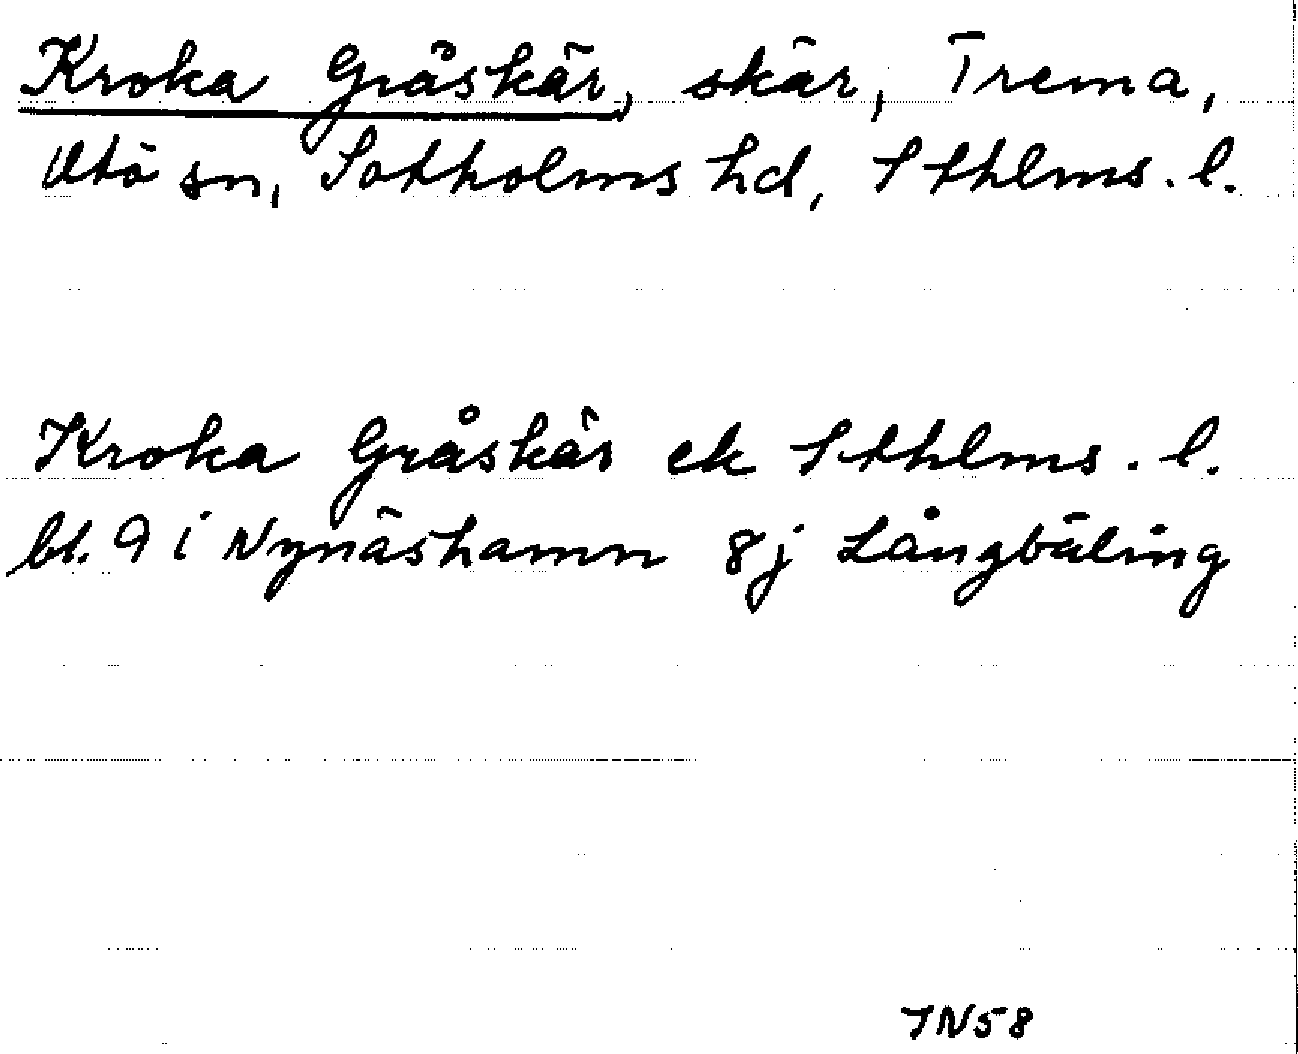 Kroka Gråskär, skär, Trema,
Utö sn, Sotholms hd, Sthlms. l.
Kroka Gråskär ek Sthlms. l.
bl. 9 i Nynäshamn 8j Långbäling
IN58